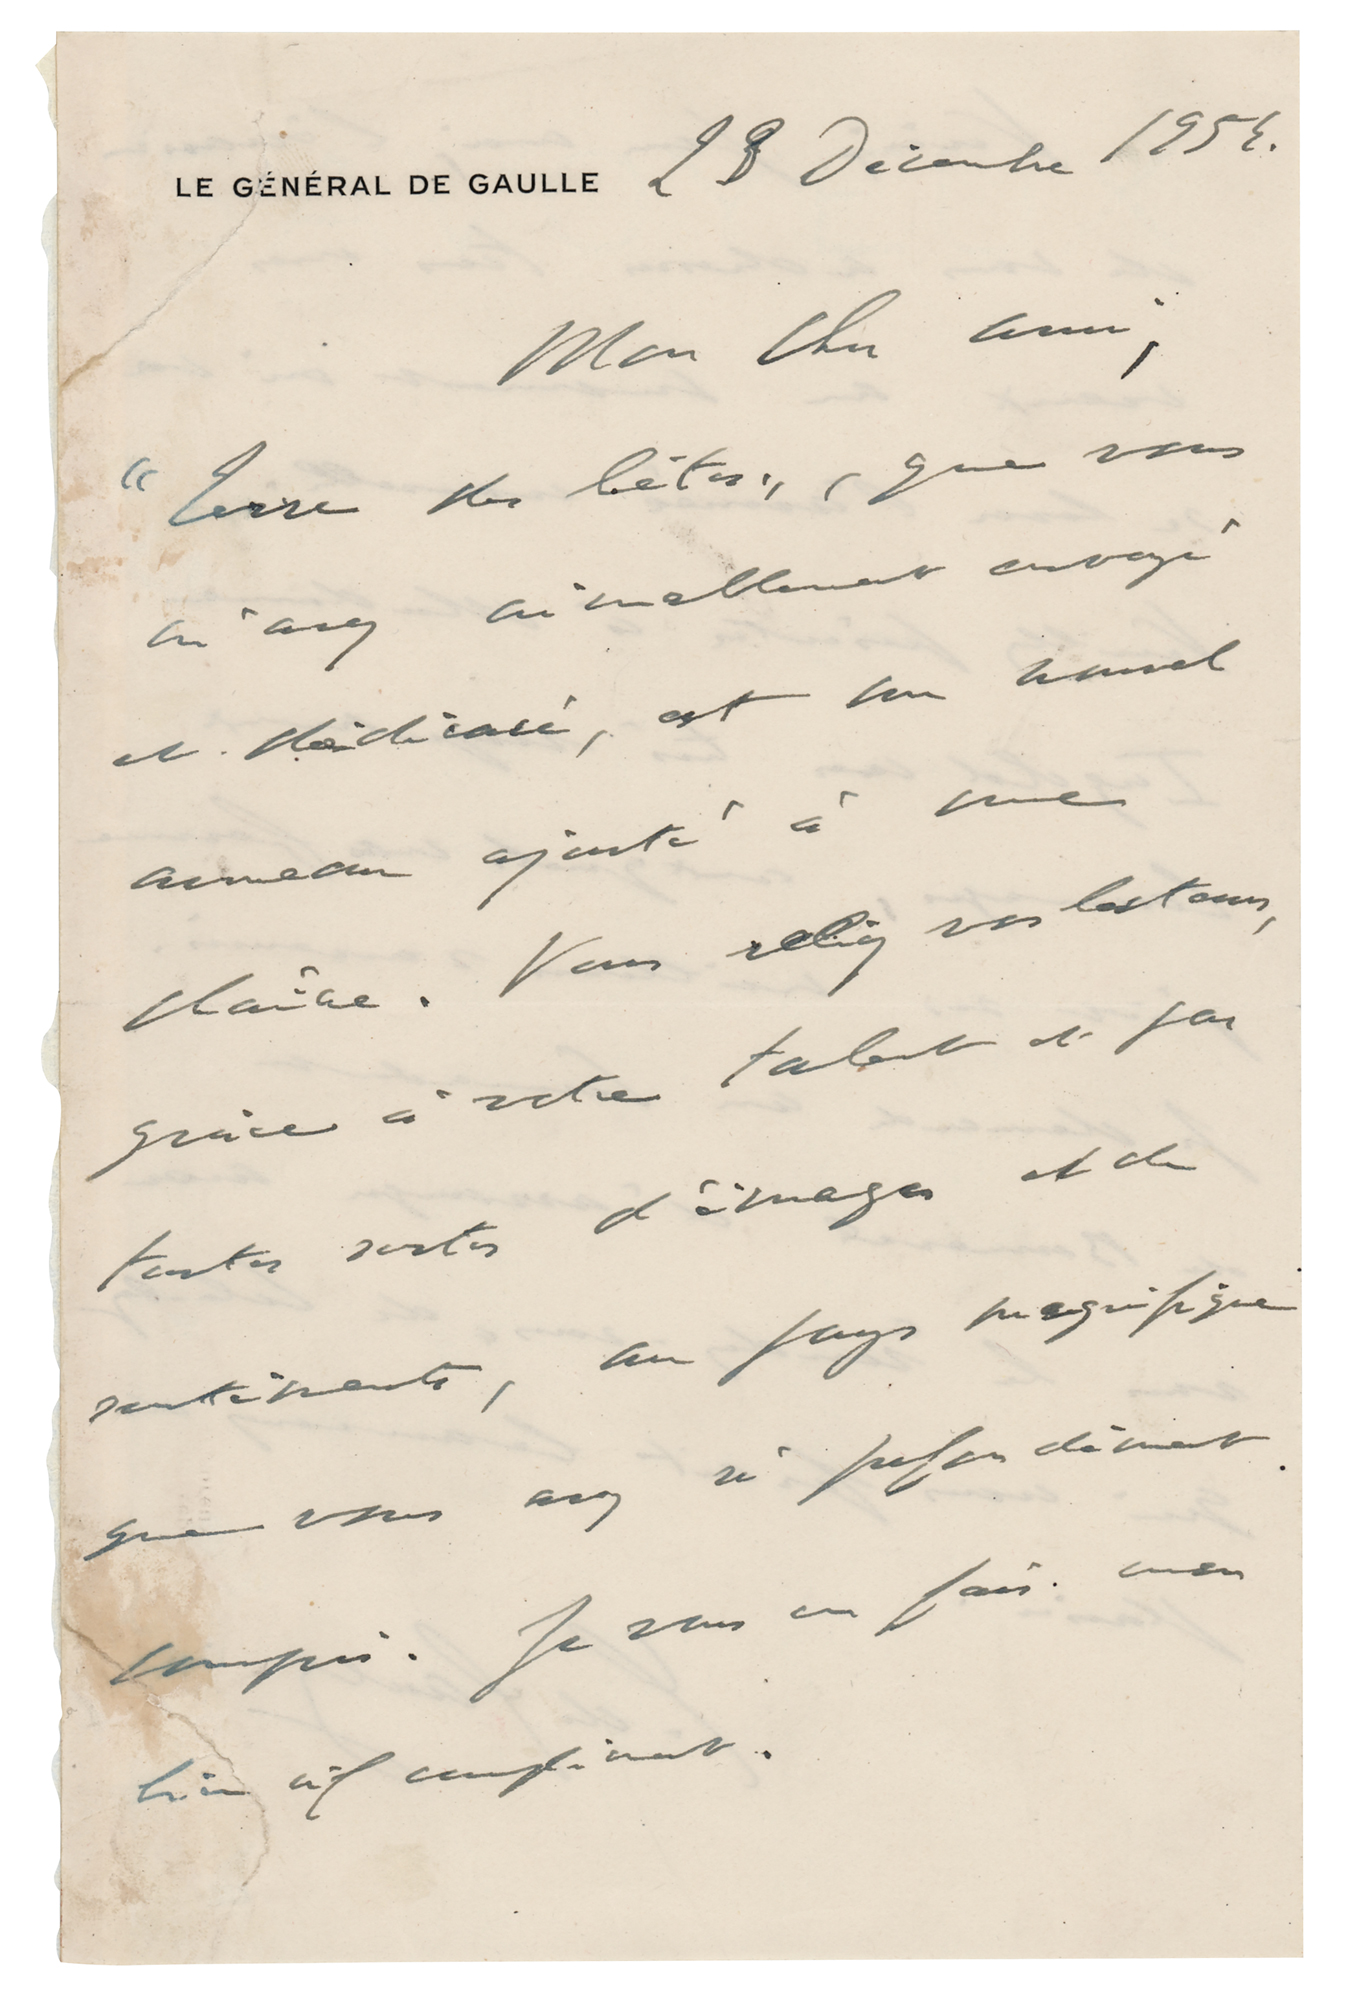 LE GÉNÉRAL DE GAULLE 28 Décembre 1954.
Mon cher ami,
"Terre des bêtes", que vous
m'avez aimablement envoyé
et dédicacé, est un nouvel
anneau ajouté à une
chaîne. Vous reliez vos lecteurs,
grâce à votre talent et par
toutes sortes d'images et de
sentiments, au pays magnifique
que vous avez si profondément
compris. Je vous en fais mon
bien vif compliment.